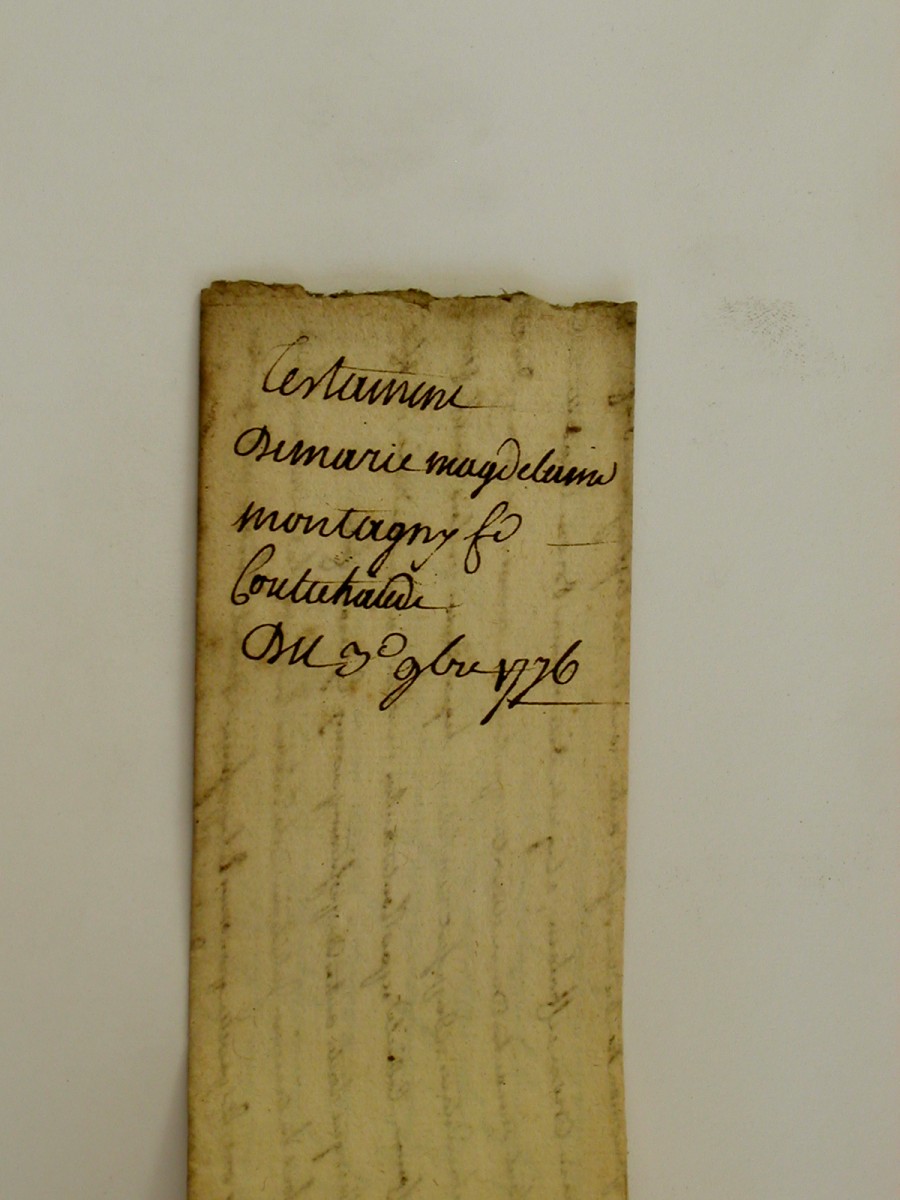 Testament
De marie magdelaine
montagny fe
Coutichaude
Du 3e 9bre 1776